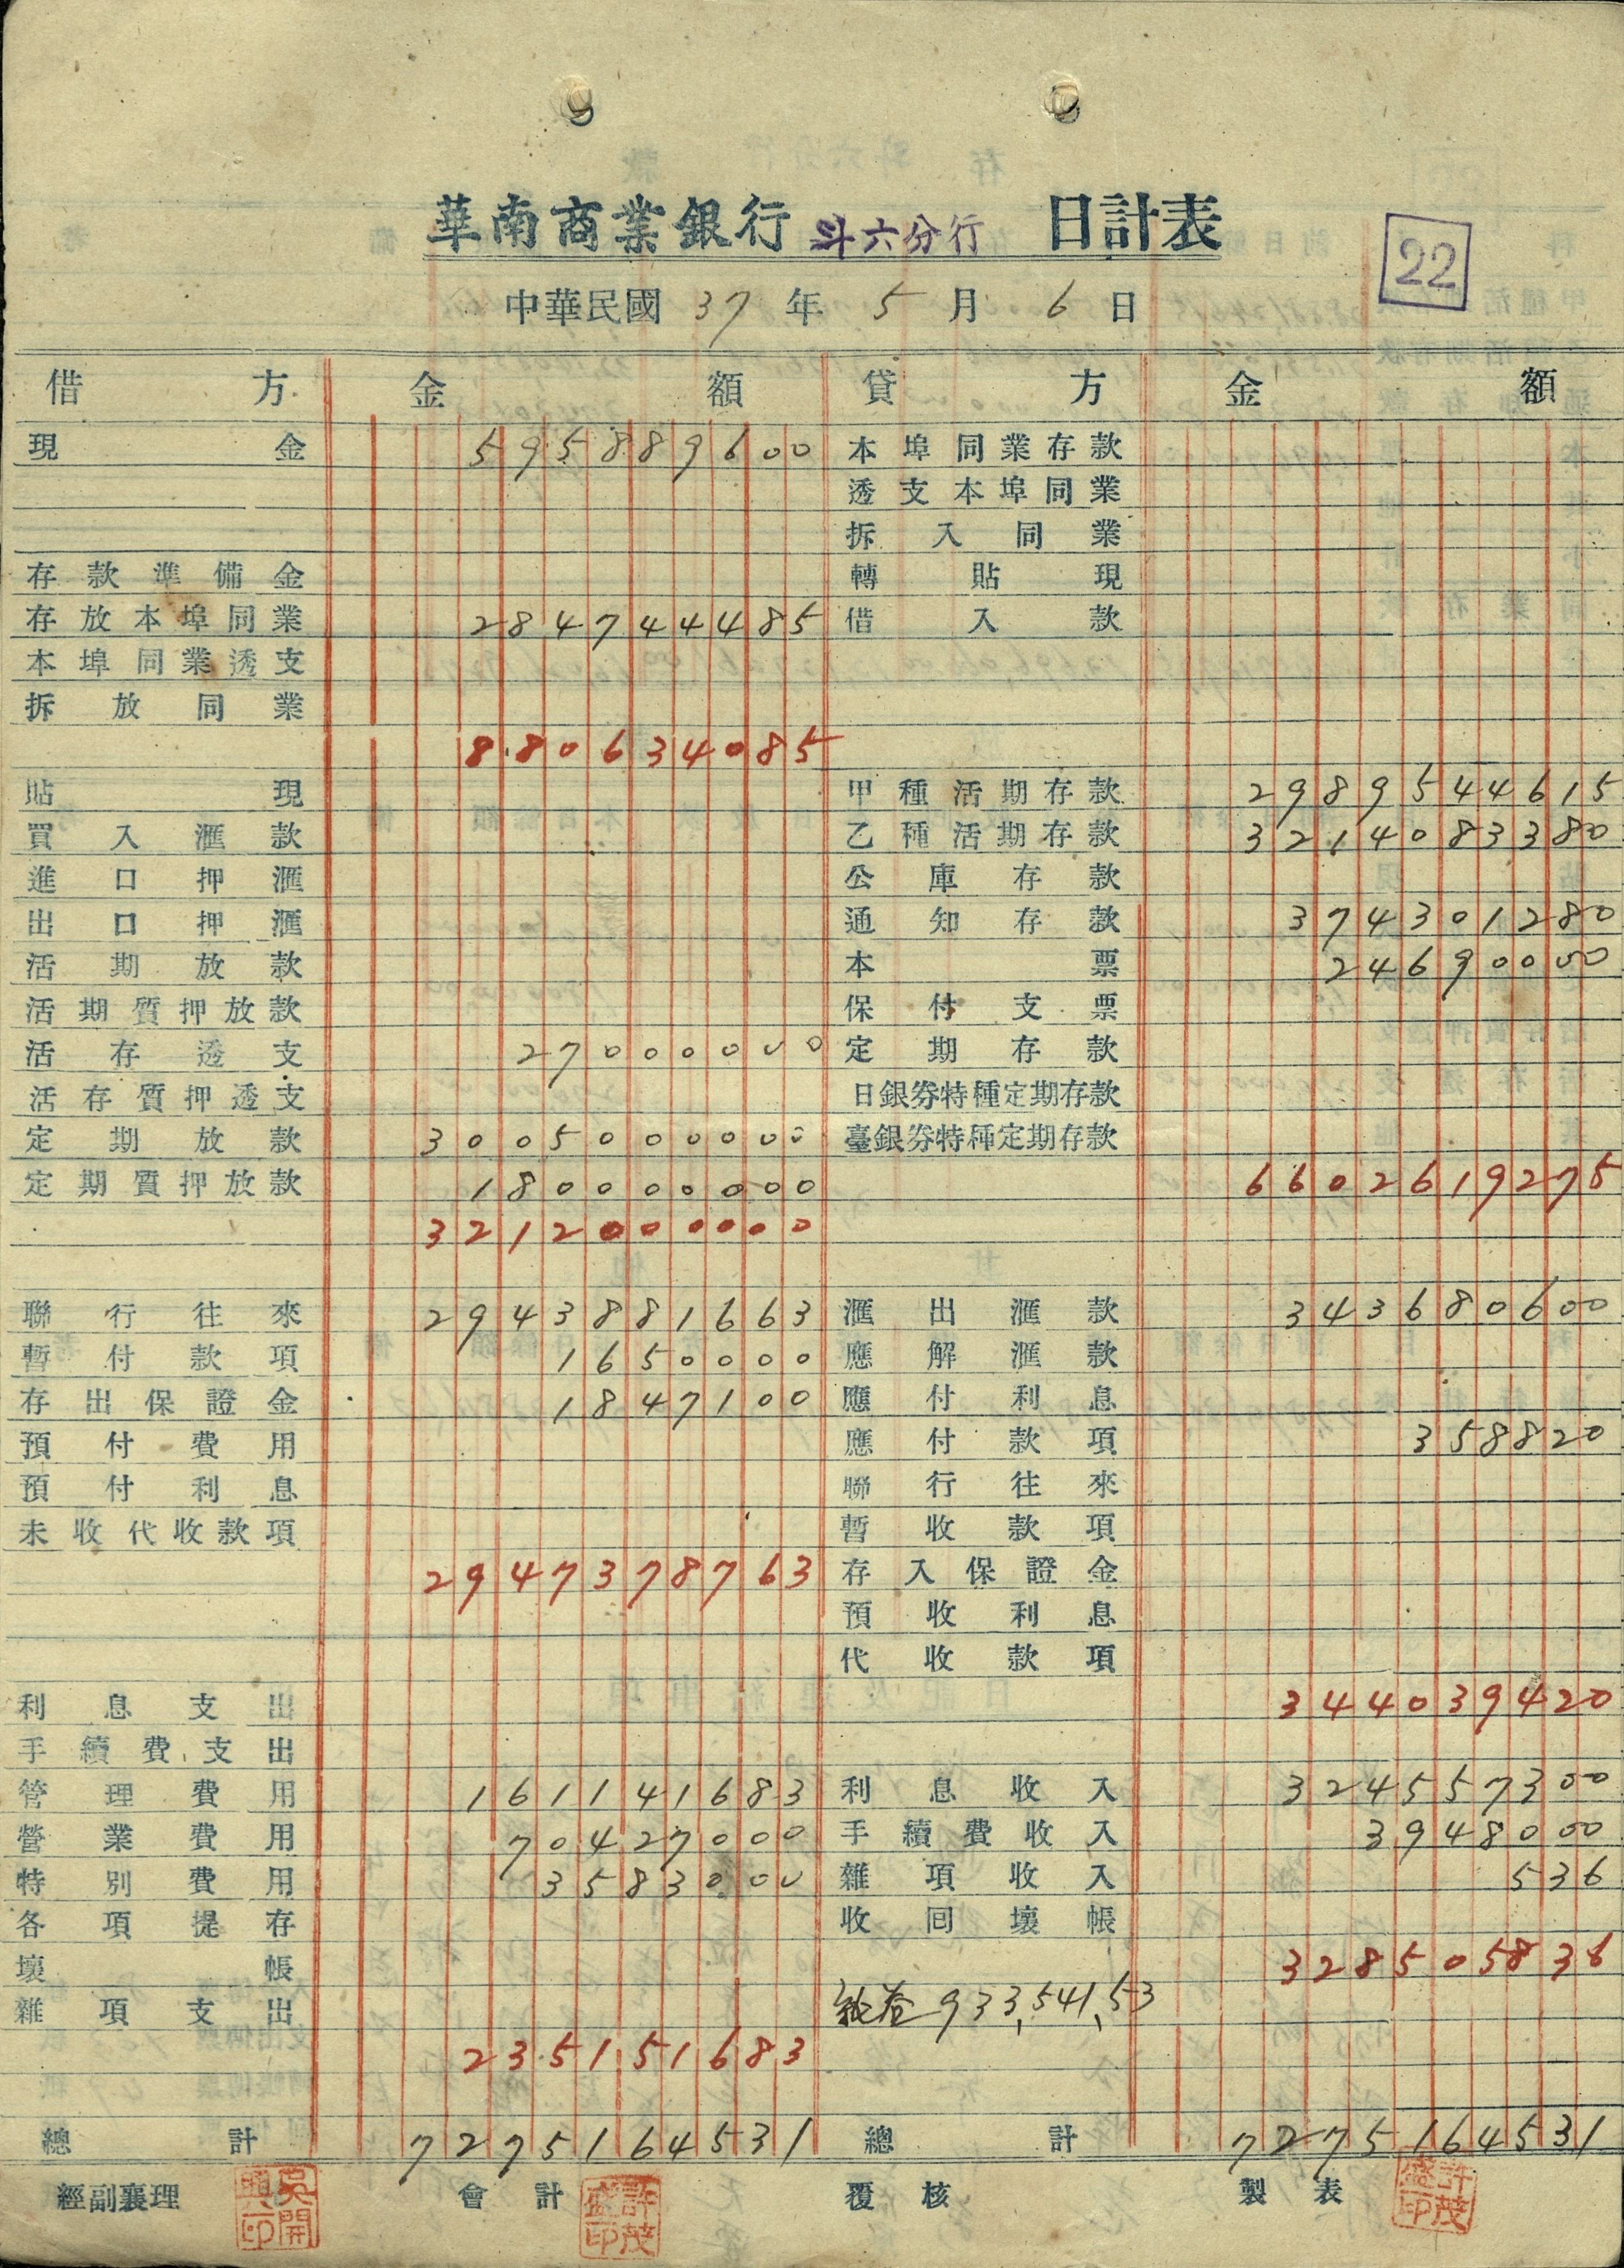 華南商業銀行 斗六分行 日計表
22
中華民國 37 年 5 月 6 日
借方 金額 貸方 金額
現金 595889600 本埠同業存款
透支本埠同業
拆入同業
存款準備金 轉貼現
存放本埠同業 284744485 借入款
本埠同業透支
拆放同業
880634085
貼現 甲種活期存款 2989544615
買入滙款 乙種活期存款 3214083380
進口押滙 公庫存款
出口押滙 通知存款 374301280
活期放款 本票 24690000
活期質押放款 保付支票
活存透支 27000000 定期存款
活存質押透支 日銀券特種定期存款
定期放款 3005000000 臺銀券特種定期存款
定期質押放款 180000000 6602619275
3212000000
聯行往來 2943881663 滙出滙款 343680600
暫付款項 1650000 應解滙款
存出保證金 1847100 應付利息
預付費用 應付款項 358820
預付利息 聯行往來
未收代收款項 暫收款項
2947378763 存入保證金
預收利息
代收款項
利息支出 344039420
手續費支出
管理費用 161141683 利息收入 324557300
營業費用 70427000 手續費收入 3948000
特別費用 3583000 雜項收入 536
各項提存 收回壞帳
壞帳 328505836
雜項支出 純益 933,541.53
235151683
總計 7275164531 總計 7275164531
經副襄理 吳開興印 會計 許茂盛印 覆核 製表 許茂盛印